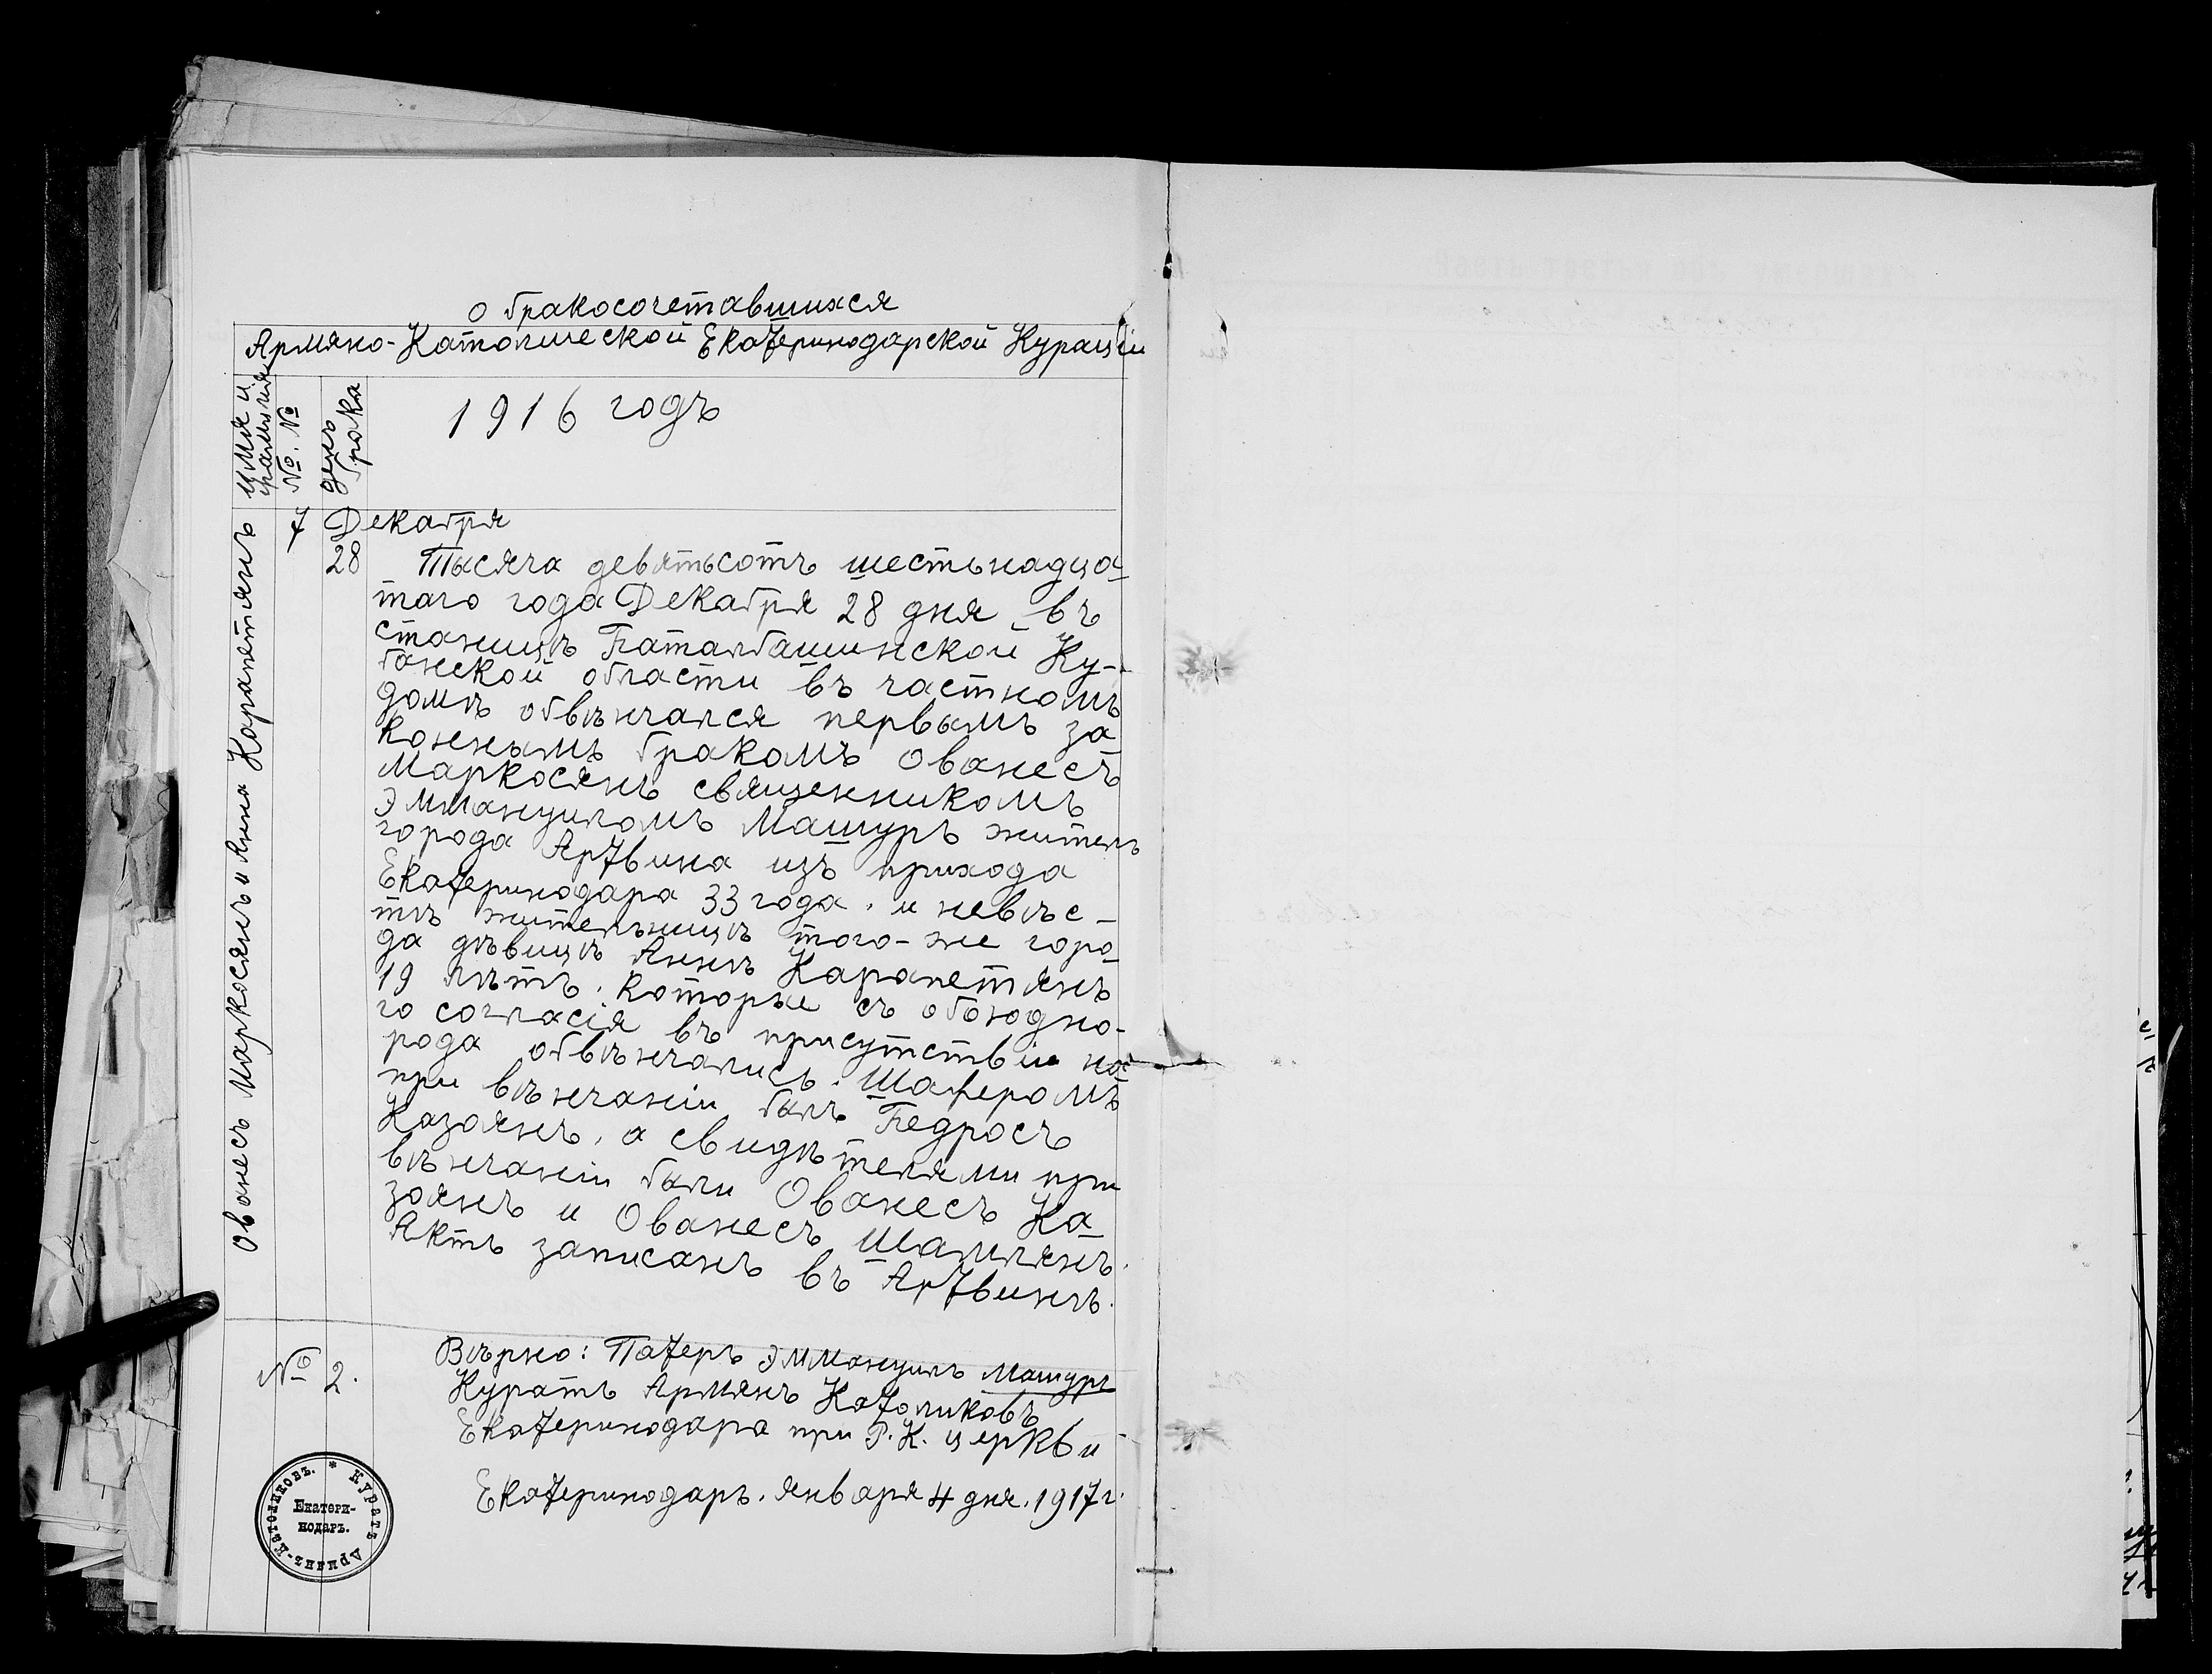 о бракосочетавшихся
Армяно-Католической Екатеринодарской Курації
имя и фамилия
№. №
день брака
1916 годъ
Ованесъ Маркосянъ и Анна Карапетянъ
7
Декабря
28
Тысяча девятьсотъ шестьнадца-
таго года Декабря 28 дня въ
станицѣ Баталбашинской Ку-
банской области въ частномъ
домѣ обвѣнчался первымъ за
коннымъ бракомъ Ованесъ
Маркосянъ священникомъ
Эммануиломъ Машуръ житель
города Артвина изъ прихода
Екатеринодара 33 года. и невѣс-
тѣ жительницѣ того-же горо-
да дѣвицѣ Аннѣ Карапетянъ
19 лѣтъ. которые съ обоюдно-
го согласія въ присутствіи на
рода обвѣнчались. Шаферомъ
при вѣнчаніи былъ Бедросъ
Казоянъ, а свидѣтелями при
вѣнчаніи были Ованесъ Ка
зоянъ и Ованесъ Шамлянъ.
Актъ записанъ въ Артвинѣ.
№ 2.
Вѣрно: Патеръ Эммануилъ Машуръ
Куратъ Армянъ Католиковъ
Екатеринодара при Р. К. церкви
Екатеринодаръ. Января 4 дня. 1917 г.
* Куратъ Армянъ-Католиковъ.
Екатери-
нодаръ.